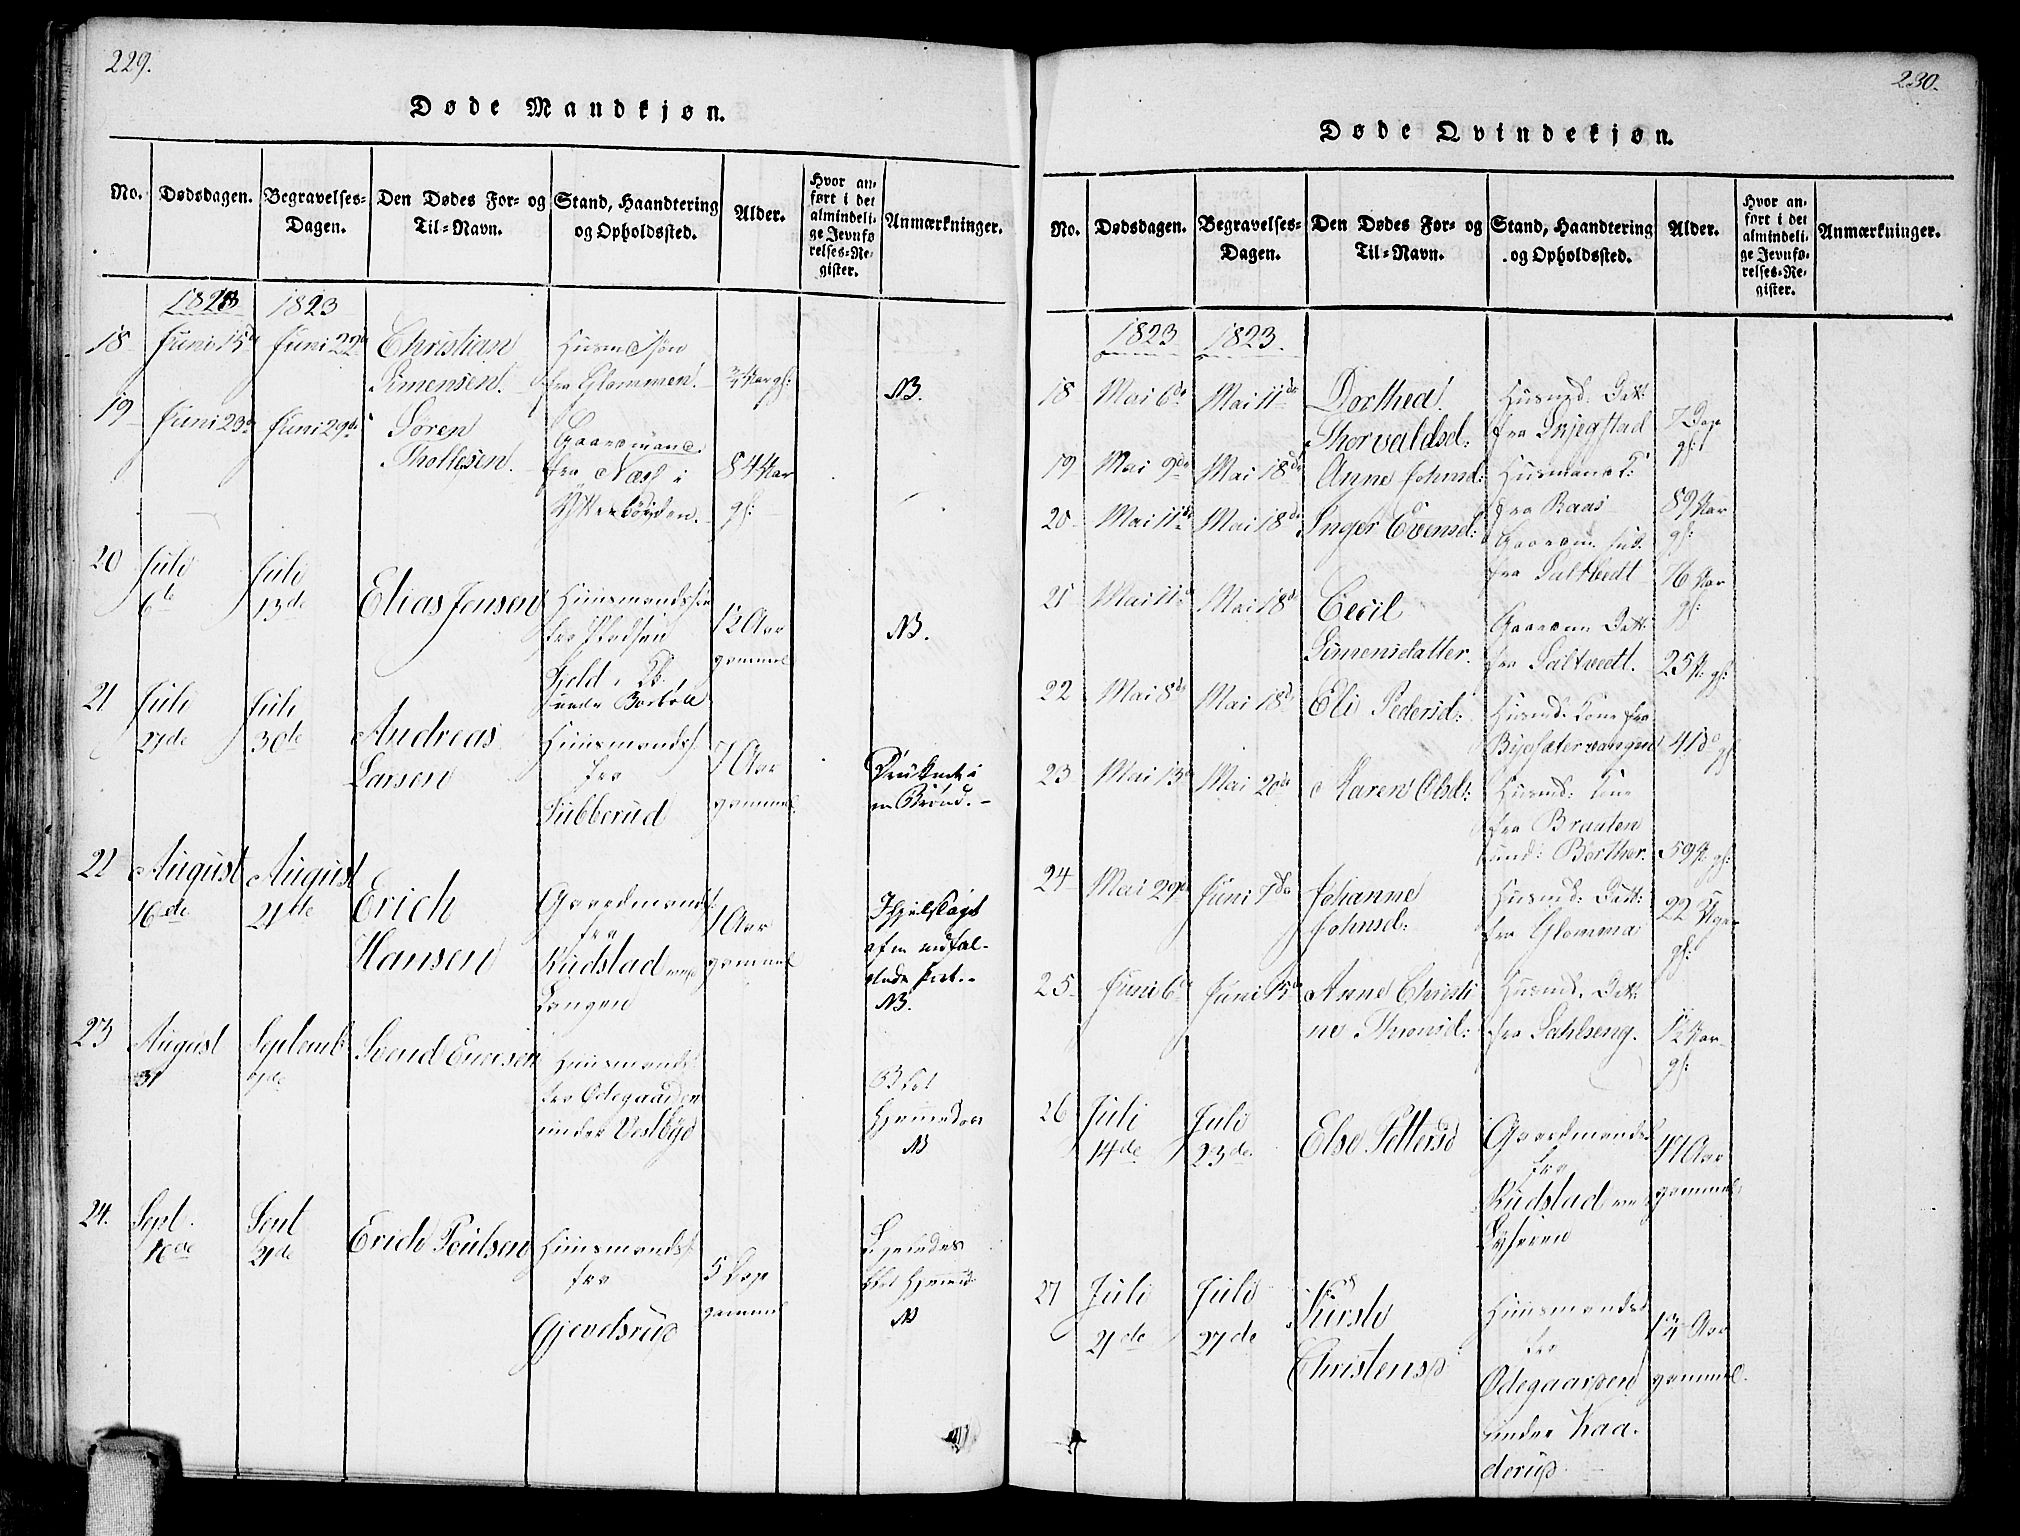 229.
Døde Mandkjøn.
No.
Dødsdagen.
Begravelses-
Dagen.
Den Dødes For- og
Til-Navn.
Stand, Haandtering
og Opholdssted.
Alder.
Hvor an-
ført i det
almindeli-
ge Jevnfø
relses-Re-
gister.
Anmærkninger.
1823 1823
18 Juni 15de Juni 22de Christian
Simensen.
fra Glommen.
3/4 Aar gl:
NB.
19 Juni 23de Juni 29de Søren
Thollesen.
Gaardmand
fra Næss i
84 Aar
gl:
20 Juli
6te
Juli
13de
Elias Jensen
Huusmandssøn
fra
12 Aar
gammel
NB.
21 Juli
27de
Juli
30te
Andreas
Larsen
Huusmandss.
fra
Tubberud
7 Aar
gammel
Druknet i
en Brønd.-
22 August
16de
August
21de
Erich
Hansen
Gaardmands
fra
Rudstad ved
Langen
1 Aar
gammel
Ihjelslaget
af en nedfal-
NB.
23 August
31
Septemb:
7de
Svend Evensen
Huusmands
fra Ødegaarden
under Vestbye
Hjemmedøbt
NB
24. Sept.
16de
Sept
21de
Erich Poulsen
Huusmandss.
fra
Gjevelsrud
5 Dage
gammel
Ligeledes
NB
230.
Døde Qvindekjøn.
No.
Dødsdagen.
Begravelses-
Dagen.
Den Dødes For- og
Til-Navn.
Stand, Haandtering
og Opholdssted.
Alder.
Hvor an-
ført i det
almindeli-
ge Jevnfø-
relses-Re-
gister.
Anmærkninger.
1823 1823.
18 Mai 6de Mai 11de Dorthea
Thorvaldsd:
Husmd: Datt:
fra
7 Dage
gl:
19 Mai 9de Mai 18de Anne Johnsd:
fra Raas
89 Aar
gl:
20 Mai 11de Mai 18de Inger Evensd:
fra Saltvedt
76 Aar
gl:
21 Mai 11de Mai 18de Cecil
Simensdatter.
Gaardm: Datt:
fra Saltvedt.
25 A: gl:
22 Mai 8de Mai 18de Eli Pedersd:
Husmd: Kone fra
41 do gl
23 Mai 13de Mai 20de Karen Olsd:
Husmd: Kone
fra Braaten
59 A: gl:
24 Mai 29de Juni 1de Johanne
Johnsd:
Husmd: Datt:
fra Glomma
22 Uger
gl:
25 Juni 6de Juni 15de Anne Christi
ne
Husmd. Datt:
fra Sahlseng.
1/2 Aar
gl:
26 Juli
14de
Juli
23de
Else Pettersd
Gaardmands
fra
Rudstad ved
Lyseren
47 Aar
gammel
27 Juli
21de
Juli
27de
Kirste
Christensd
Huusmands
fra
Ødegaarden
under Kaa-
derud
1 3/4 Aar
gammel.